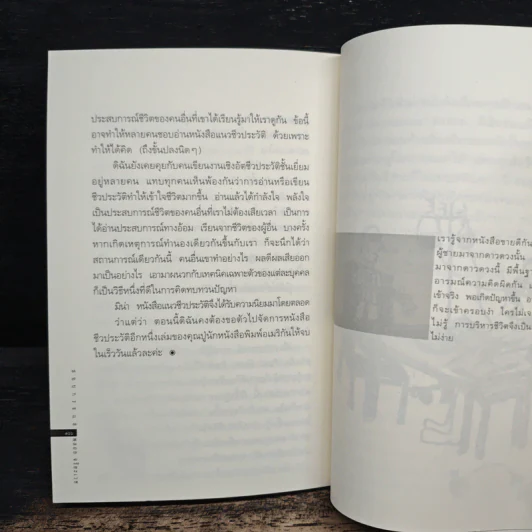 ประสบการณ์ชีวิตของคนอื่นที่เขาได้เรียนรู้มาให้เราดูกัน ข้อนี้
อาจทำให้หลายคนชอบอ่านหนังสือแนวชีวประวัติ ด้วยเพราะ
ทำให้ได้คิด (ถึงขั้นปลงนิดๆ)
ดิฉันยังเคยคุยกับคนเขียนงานเชิงอัตชีวประวัติชั้นเยี่ยม
อยู่หลายคน แทบทุกคนเห็นพ้องกันว่าการอ่านหรือเขียน
ชีวประวัติทำให้เข้าใจชีวิตมากขึ้น อ่านแล้วได้กำลังใจ พลังใจ
เป็นประสบการณ์ชีวิตของคนอื่นที่เราไม่ต้องเสียเวลา เป็นการ
ได้อ่านประสบการณ์ทางอ้อม เรียนจากชีวิตของผู้อื่น บางครั้ง
หากเกิดเหตุการณ์ทำนองเดียวกันขึ้นกับเรา ก็จะนึกได้ว่า
สถานการณ์เดียวกันนี้ คนอื่นเขาทำอย่างไร ผลดีผลเสียออก
มาเป็นอย่างไร เอามาผนวกกับเทคนิคเฉพาะตัวของแต่ละบุคคล
ก็เป็นวิธีหนึ่งที่ดีในการคิดทบทวนปัญหา
มิน่า หนังสือแนวชีวประวัติจึงได้รับความนิยมมาโดยตลอด
ว่าแต่ว่า ตอนนี้ดิฉันคงต้องขอตัวไปจัดการหนังสือ
ชีวประวัติอีกหนึ่งเล่มของคุณปู่นักหนังสือพิมพ์อเมริกันให้จบ
ในเร็ววันแล้วละค่ะ
เรารู้จากหนังสือขายดีกัน
ผู้ชายมาจากดาวดวงนั้น
มาจากดาวดวงนี้ มีพื้นฐ
อารมณ์ความคิดผิดกัน
เข้าจริง พอเกิดปัญหาขึ้น
ก็จะเข้าครอบงำ ใครไม่เจ
ไม่รู้ การบริหารชีวิตจึงเป็น
ไม่ง่าย